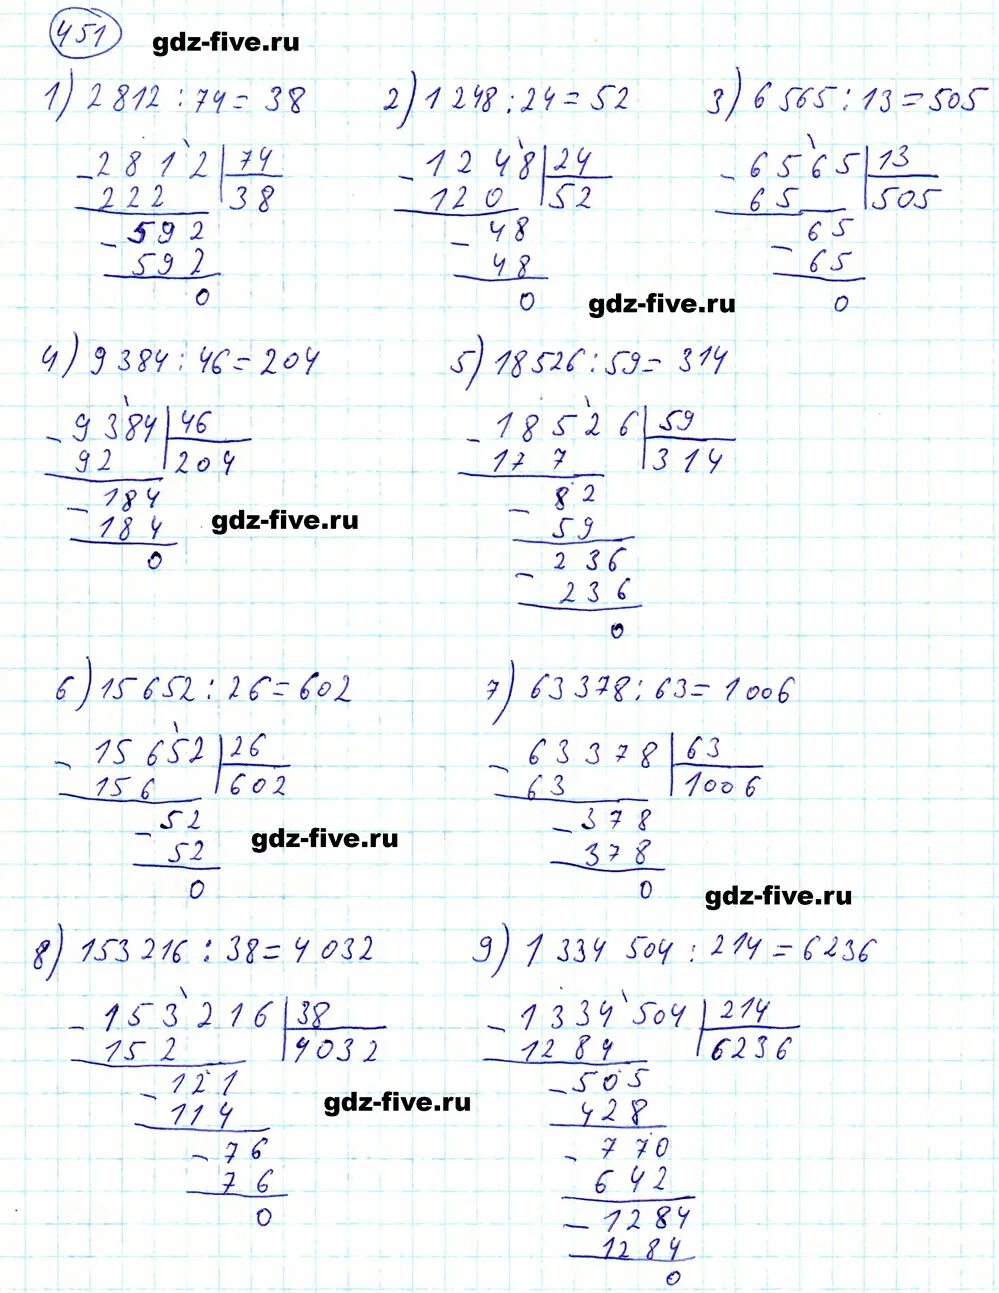 451 gdz-five.ru
1) 2812 : 74 = 38
2812 74
222 38
592
592
0
2) 1248 : 24 = 52
1248 24
120 52
48
48
0
3) 6565 : 13 = 505
6565 13
65 505
65
65
0
gdz-five.ru
4) 9384 : 46 = 204
9384 46
92 204
184
184
0
gdz-five.ru
5) 18526 : 59 = 314
18526 59
177 314
82
59
236
236
0
6) 15652 : 26 = 602
15652 26
156 602
52
52
0
gdz-five.ru
7) 63378 : 63 = 1006
63378 63
63 1006
378
378
0
gdz-five.ru
8) 153216 : 38 = 4032
153216 38
152 4032
121
114
76
76
0
gdz-five.ru
9) 1 334 504 : 214 = 6236
1334504 214
1284 6236
505
428
770
642
1284
1284
0